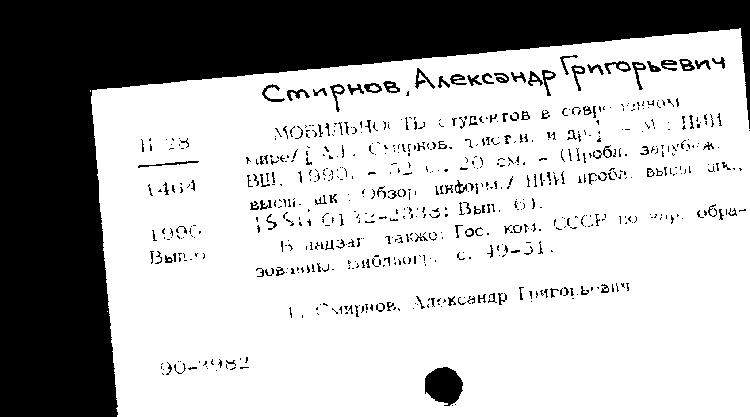 Смирнов, Александр Григорьевич
МОБИЛЬНОСТЬ студентов в современном
мире/ [А.Г. Смирнов, и др.]. - М.: НИИ
ВШ, 1990. - 52 с.; 20 см. - (Пробл. зарубеж.
высш. шк.: Обзор. информ./ НИИ пробл. высш. шк.,
ISSN 0132-2338; Вып. 6).
В надзаг. также: Гос. ком. СССР по нар. обра-
зованию. Библиогр.: с. 49-51.
1. Смирнов, Александр Григорьевич
1464
1990
Вып.6